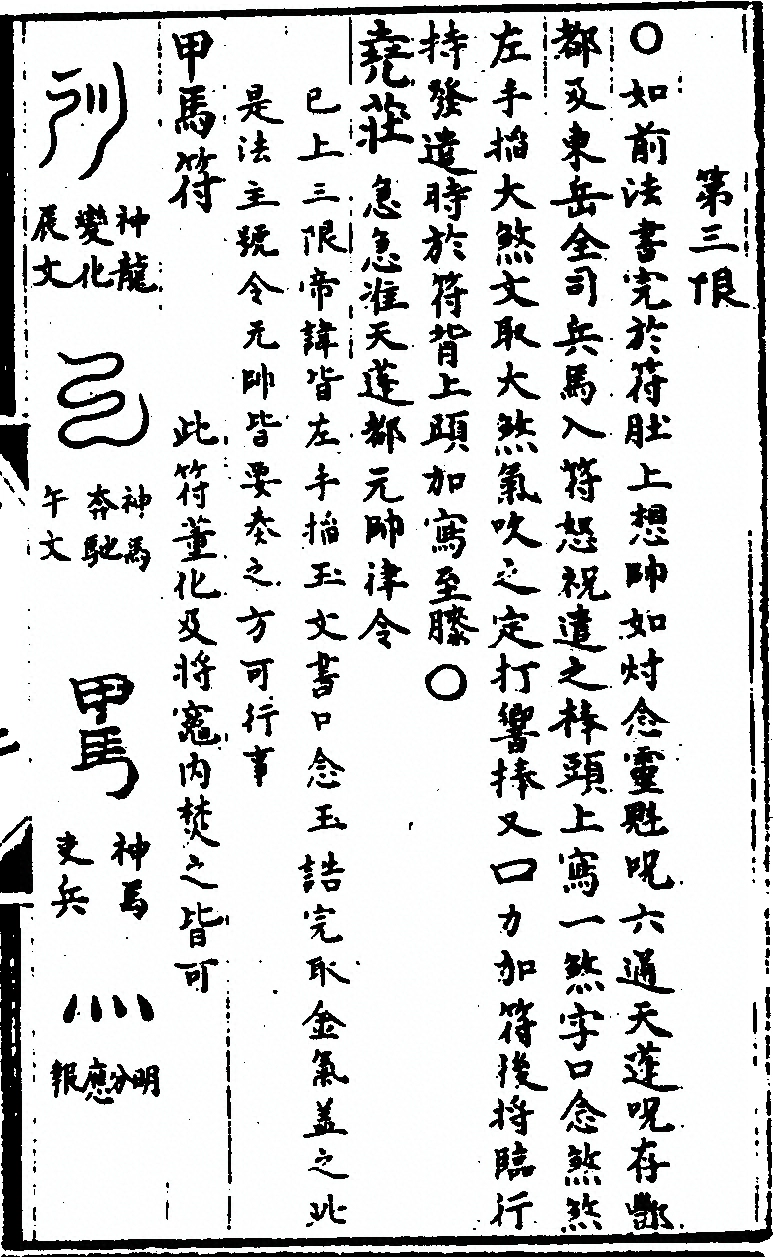 第三限
〇如前法書完於符肚上想帥如對念靈魁呪六通天蓬呪存酆
都及東岳全司兵馬入符怒祝遣之棒頭上寫一煞字口念煞煞
左手掐大煞文取大煞氣吹之定打響捧又口力加符後將臨行
持發遣時於符背上頭加寫至膝〇
急急准天蓬都元帥律令
已上三限帝諱皆左手掐玉文書口念玉誥完取金氣蓋之此
是法主號令元帥皆要奏之方可行事
甲馬符 此符董化及將竈內焚之皆可
神龍變化辰文
神馬奔馳午文
甲馬
神馬吏兵
明分應報